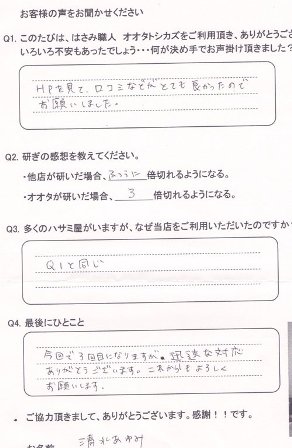 お客様の声をお聞かせください
Q1. このたびは、はさみ職人 オオタトシカズをご利用頂き、ありがとうござ
いろいろ不安もあったでしょう・・・何が決め手でお声掛け頂きました?
HPを見て、口コミなどがとても良かったので
お願いしました。
Q2. 研ぎの感想を教えてください。
・他店が研いだ場合、ふつうに 倍切れるようになる。
・オオタが研いだ場合、 3 倍切れるようになる。
Q3. 多くのハサミ屋がいますが、なぜ当店をご利用いただいたのですか
Q1と同じ
Q4. 最後にひとこと
今回で3回目になりますが、迅速な対応
ありがとうございます。これからもよろしく
お願いします。
・ ご協力頂きまして、ありがとうございます。感謝!!です。
お名前 清水あゆみ